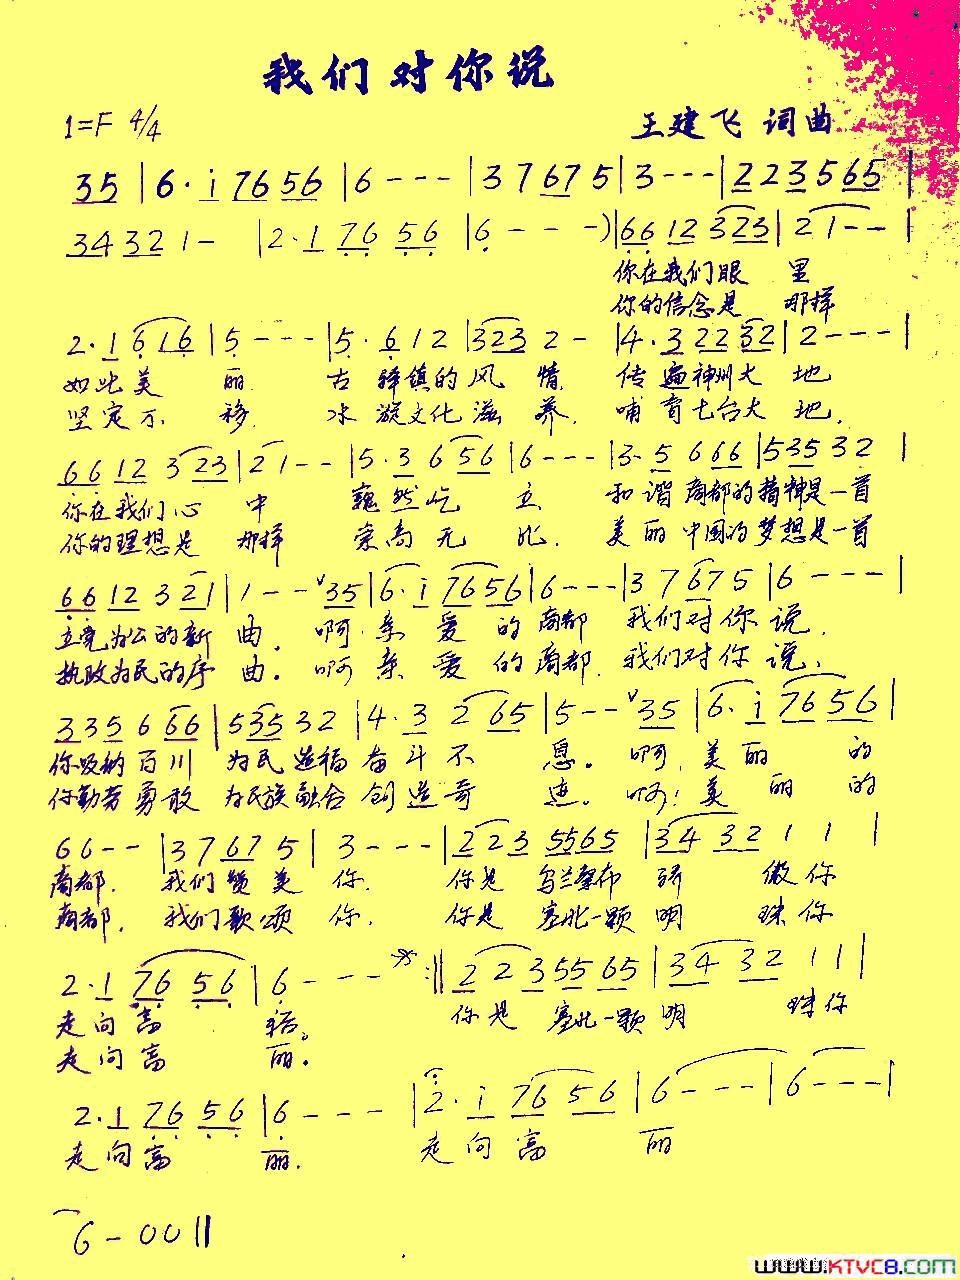 我们对你说
1=F 4/4
王建飞 词曲
35 | 6·i 7656 | 6--- | 37675 | 3--- | 223565 |
34321- | 2·1 76 56 | 6---) | 6612323 | 21-- |
你在我们眼 里
你的信念是 那样
2·1 6 16 | 5--- | 5·612 | 3232- | 4·32232 | 2--- |
如此美 丽. 古 驿镇的风 情, 传遍神州大 地
坚定不 移, 水漩文化滋 养, 哺育七台大 地,
6612323 | 21-- | 5·3656 | 6--- | 3·5666 | 53532 |
你在我们心 中 巍然屹 立 和谐商都的精神是一首
你的理想是 那样 崇高无 比, 美丽中国的梦想是一首
6612321 | 1--v35 | 6·i7656 | 6--- | 37675 | 6--- |
立党为公的新 曲。 啊·亲 爱 的商都 我们对你 说,
执政为民的序 曲。 啊 亲 爱 的商都. 我们对你 说,
335666 | 53532 | 4·3265 | 5--v35 | 6·i7656 |
你吸纳百川 为民造福奋斗不 息。 啊,美 丽 的
你勤劳勇敢 为民族融合创造奇 迹。 啊!美 丽 的
66-- | 37675 | 3--- | 2235565 | 343211 |
商都, 我们赞美 你. 你是 乌兰察布 骄 傲你
商都, 我们歌颂 你. 你是 塞北一颗明 珠你
2·1 76 56 | 6---※:‖ 2235565 | 343211 |
走向富 裕。 你是 塞北一颗明 珠你
走向富 丽.
2·1 76 56 | 6--- | 2·i7656 | 6--- | 6--- |
走向富 丽. 走向富 丽
6-00‖
www.KTVC8.com